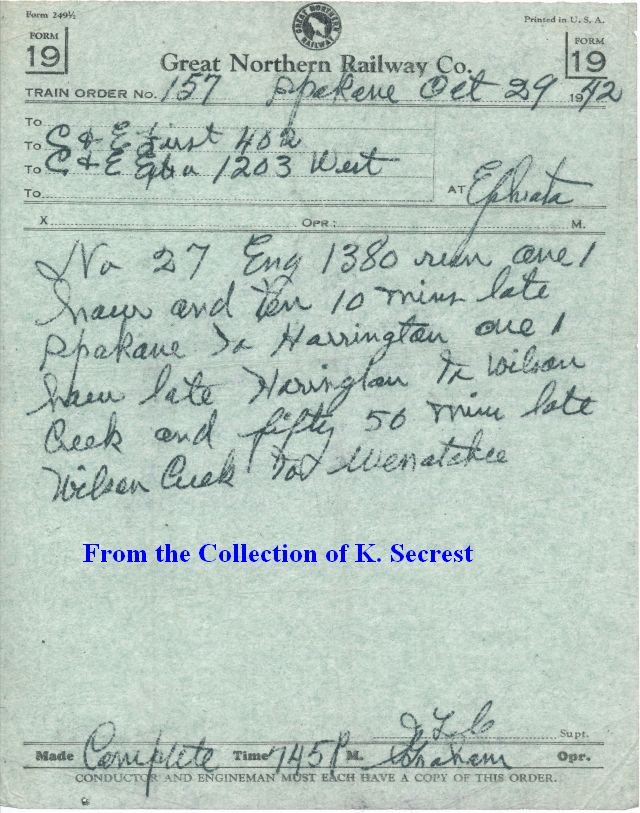 Form 249½
Printed in U. S. A.
FORM 19
GREAT NORTHERN RAILWAY
FORM 19
Great Northern Railway Co.
TRAIN ORDER No. 157 Spokane Oct 29 1942
To
To C & E First 402
To C & E 1203 West
To
AT Ephrata
X OPR: M.
No 27 Eng 1380 run one 1
hour and ten 10 mins late
Spokane to Harrington one 1
hour late Harington to Wilson
Creek and fifty 50 mins late
Wilson Creek to Wenatchee
From the Collection of K. Secrest
Supt.
Made Complete Time 745 P M. Graham Opr.
CONDUCTOR AND ENGINEMAN MUST EACH HAVE A COPY OF THIS ORDER.